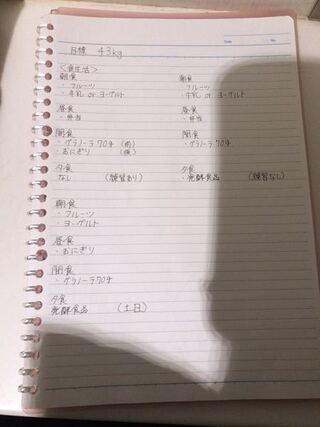 目標 43kg
<食生活>
朝食
・フルーツ
・牛乳 or ヨーグルト
昼食
・弁当
間食
・グラノーラ70g (前)
・おにぎり (後)
夕食
なし (練習あり)
朝食
・フルーツ
・牛乳 or ヨーグルト
昼食
・弁当
間食
・グラノーラ70g
夕食
・発酵食品 (練習なし)
朝食
・フルーツ
・ヨーグルト
昼食
・おにぎり
間食
・グラノーラ70g
夕食
発酵食品 (土日)